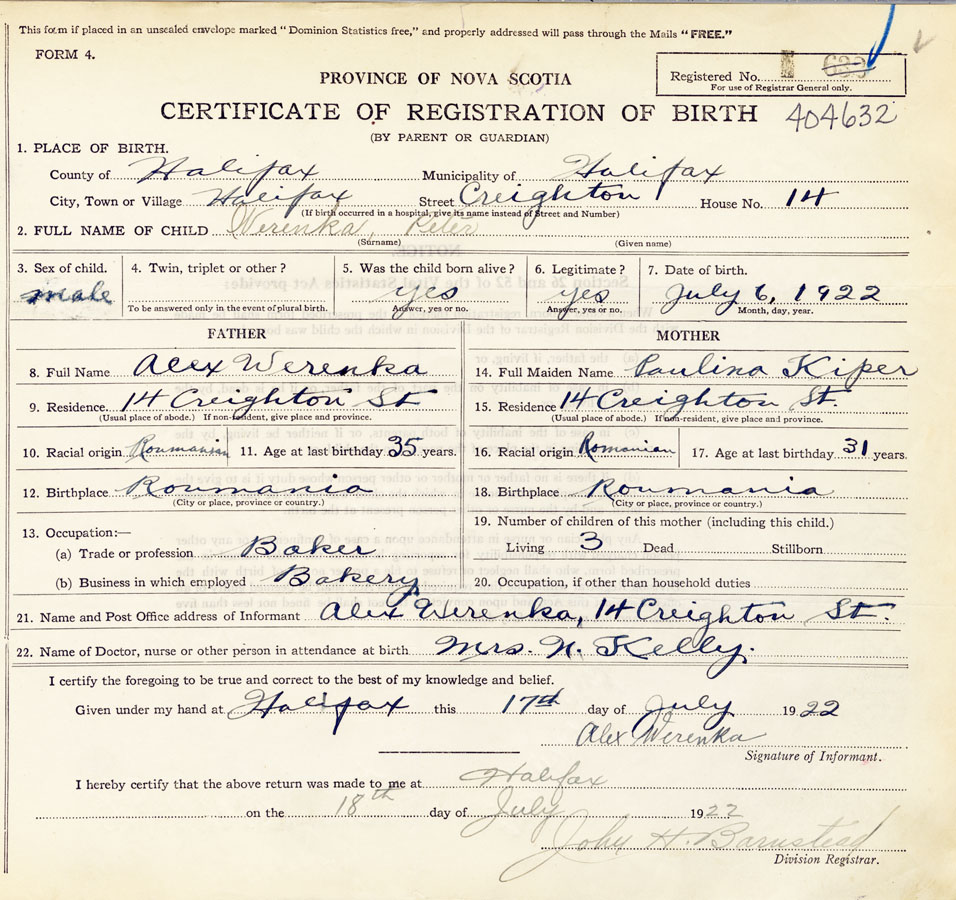 This form if placed in an unsealed envelope marked "Dominion Statistics free," and properly addressed will pass through the Mails "FREE."
FORM 4.
PROVINCE OF NOVA SCOTIA
Registered No. 633
For use of Registrar General only.
CERTIFICATE OF REGISTRATION OF BIRTH 404632
(BY PARENT OR GUARDIAN)
1. PLACE OF BIRTH.
County of Halifax Municipality of Halifax
City, Town or Village Halifax Street Creighton House No. 14
(If birth occurred in a hospital, give its name instead of Street and Number)
2. FULL NAME OF CHILD Werenka, Peter
(Surname) (Given name)
3. Sex of child. 4. Twin, triplet or other? 5. Was the child born alive? 6. Legitimate? 7. Date of birth.
male yes yes July 6, 1922
To be answered only in the event of plural birth. Answer, yes or no. Answer, yes or no. Month, day, year.
FATHER MOTHER
8. Full Name Alex Werenka 14. Full Maiden Name Paulina Kiper
9. Residence 14 Creighton St 15. Residence 14 Creighton St.
(Usual place of abode.) If non-resident, give place and province. (Usual place of abode.) If non-resident, give place and province.
10. Racial origin Roumanian 11. Age at last birthday 35 years. 16. Racial origin Romanian 17. Age at last birthday 31 years.
12. Birthplace Roumania 18. Birthplace Roumania
(City or place, province or country.) (City or place, province or country.)
13. Occupation:— 19. Number of children of this mother (including this child.)
(a) Trade or profession Baker Living 3 Dead Stillborn
(b) Business in which employed Bakery 20. Occupation, if other than household duties
21. Name and Post Office address of Informant Alex Werenka, 14 Creighton St.
22. Name of Doctor, nurse or other person in attendance at birth Mrs. N. Kelly.
I certify the foregoing to be true and correct to the best of my knowledge and belief.
Given under my hand at Halifax this 17th day of July 1922
Alex Werenka
Signature of Informant.
I hereby certify that the above return was made to me at Halifax
on the 18th day of July 1922
John H. Barnstead
Division Registrar.